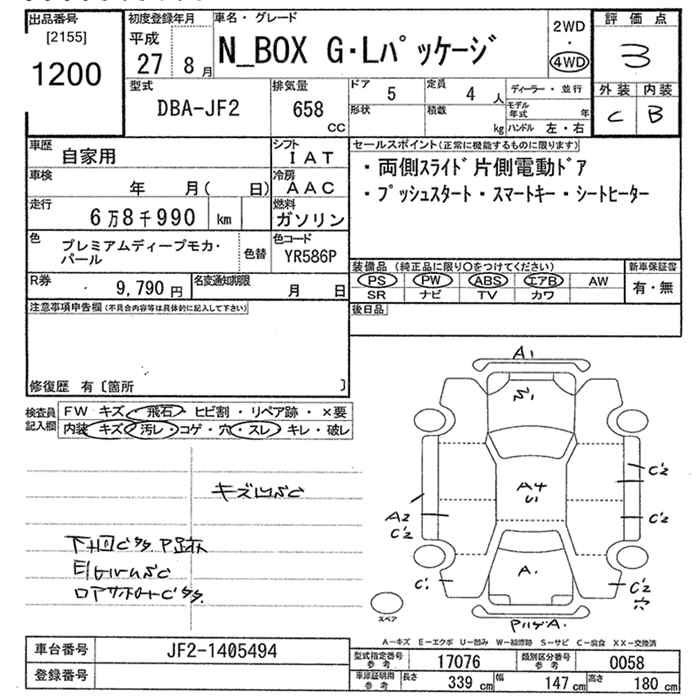 出品番号
[2155]
1200
初度登録年月
平成
27 8月
車名・グレード
N_BOX G・Lパッケージ
2WD
・
4WD
評価点
3
外装 内装
C B
型式
DBA-JF2
排気量
658
CC
ドア
5
定員
4人
形状
積数
kg
ディーラー・並行
モデル年式 年
ハンドル 左・右
車歴
自家用
シフト
IAT
車検
年 月( 日)
冷房
AAC
走行
6万8千990 km
燃料
ガソリン
色
プレミアムディープモカ・パール
色替
色コード
YR586P
R券
9,790円
名変通知期限
月 日
セールスポイント(正常に機能するものに限ります)
・両側スライド片側電動ドア
・プッシュスタート・スマートキー・シートヒーター
装備品(純正品に限り○をつけてください)
PS PW ABS エアB AW
SR ナビ TV カワ
新車保証書
有・無
後日品
注意事項申告欄(不具合内容等は具体的に記入して下さい)
修復歴 有〔箇所 〕
検査員記入欄
FW キズ・飛石・ヒビ割・リペア跡・×要
内装 キズ・汚レ・コゲ・穴・スレ・キレ・破レ
下回Cササ P跡
ロアサポートCササ
A1
A4
U1
A2
C'2
C'2
C'2
C'
C'2
穴
A.
スペア
A-キズ E-エクボ U-凹み W-補修跡 S-サビ C-腐食 XX-交換済
車台番号
JF2-1405494
登録番号
型式指定番号
参考
17076
類別区分番号
参考
0058
車庫証明用
参考
長さ 339 cm 幅 147 cm 高さ 180 cm